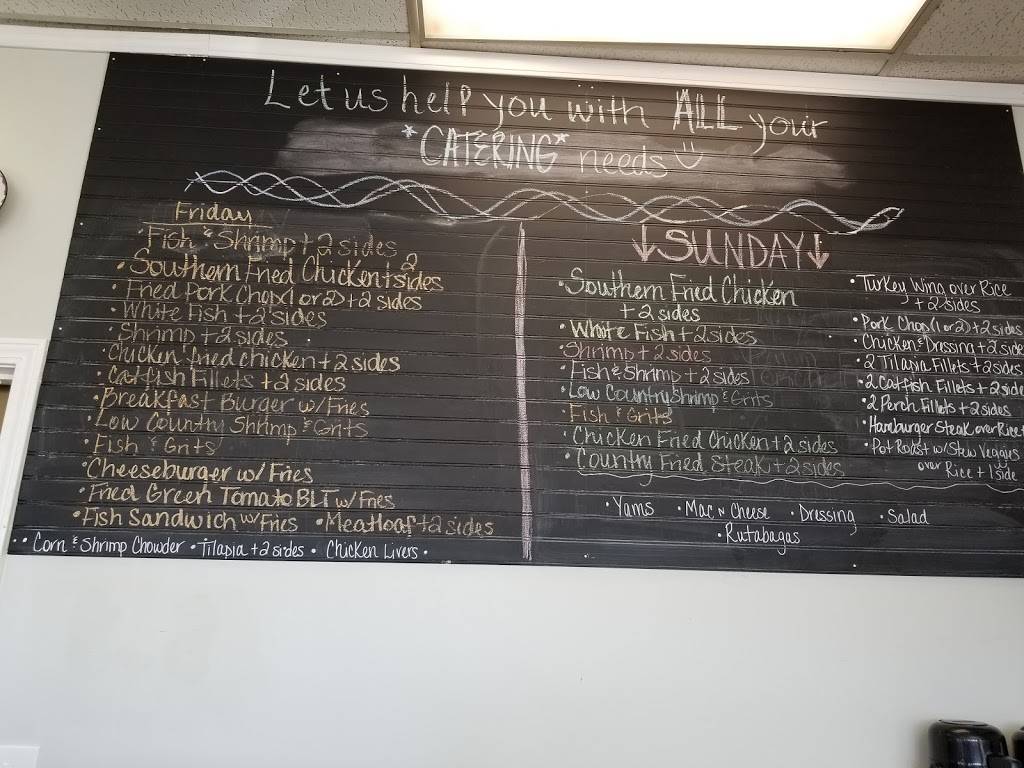 Let us help you with ALL your
*CATERING* needs
Friday
• Fish & Shrimp + 2 sides
• Southern Fried Chicken + 2 sides
• Fried Pork Chop (1 or 2) + 2 sides
• White Fish + 2 sides
• Shrimp + 2 sides
• Chicken fried chicken + 2 sides
• Catfish Fillets + 2 sides
• Breakfast Burger w/ Fries
• Low Country Shrimp & Grits
• Fish & Grits
• Cheeseburger w/ Fries
• Fried Green Tomato BLT w/ Fries
• Fish Sandwich w/ Fries • Meatloaf + 2 sides
• Corn & Shrimp Chowder • Tilapia + 2 sides • Chicken Livers •
↓SUNDAY↓
• Southern Fried Chicken
+ 2 sides
• White Fish + 2 sides
• Shrimp + 2 sides
• Fish & Shrimp + 2 sides
• Low Country Shrimp & Grits
• Fish & Grits
• Chicken Fried Chicken + 2 sides
• Country Fried Steak + 2 sides
• Turkey Wing over Rice
+ 2 sides
• Pork Chop (1 or 2) + 2 sides
• Chicken & Dressing + 2 side
• 2 Tilapia Fillets + 2 sides
• 2 Catfish Fillets + 2 side
• 2 Perch Fillets + 2 sides
• Hamburger Steak over Rice +
• Pot Roast w/ Stew Veggies
over Rice + 1 side
• Yams • Mac N Cheese • Dressing • Salad
• Rutabagas